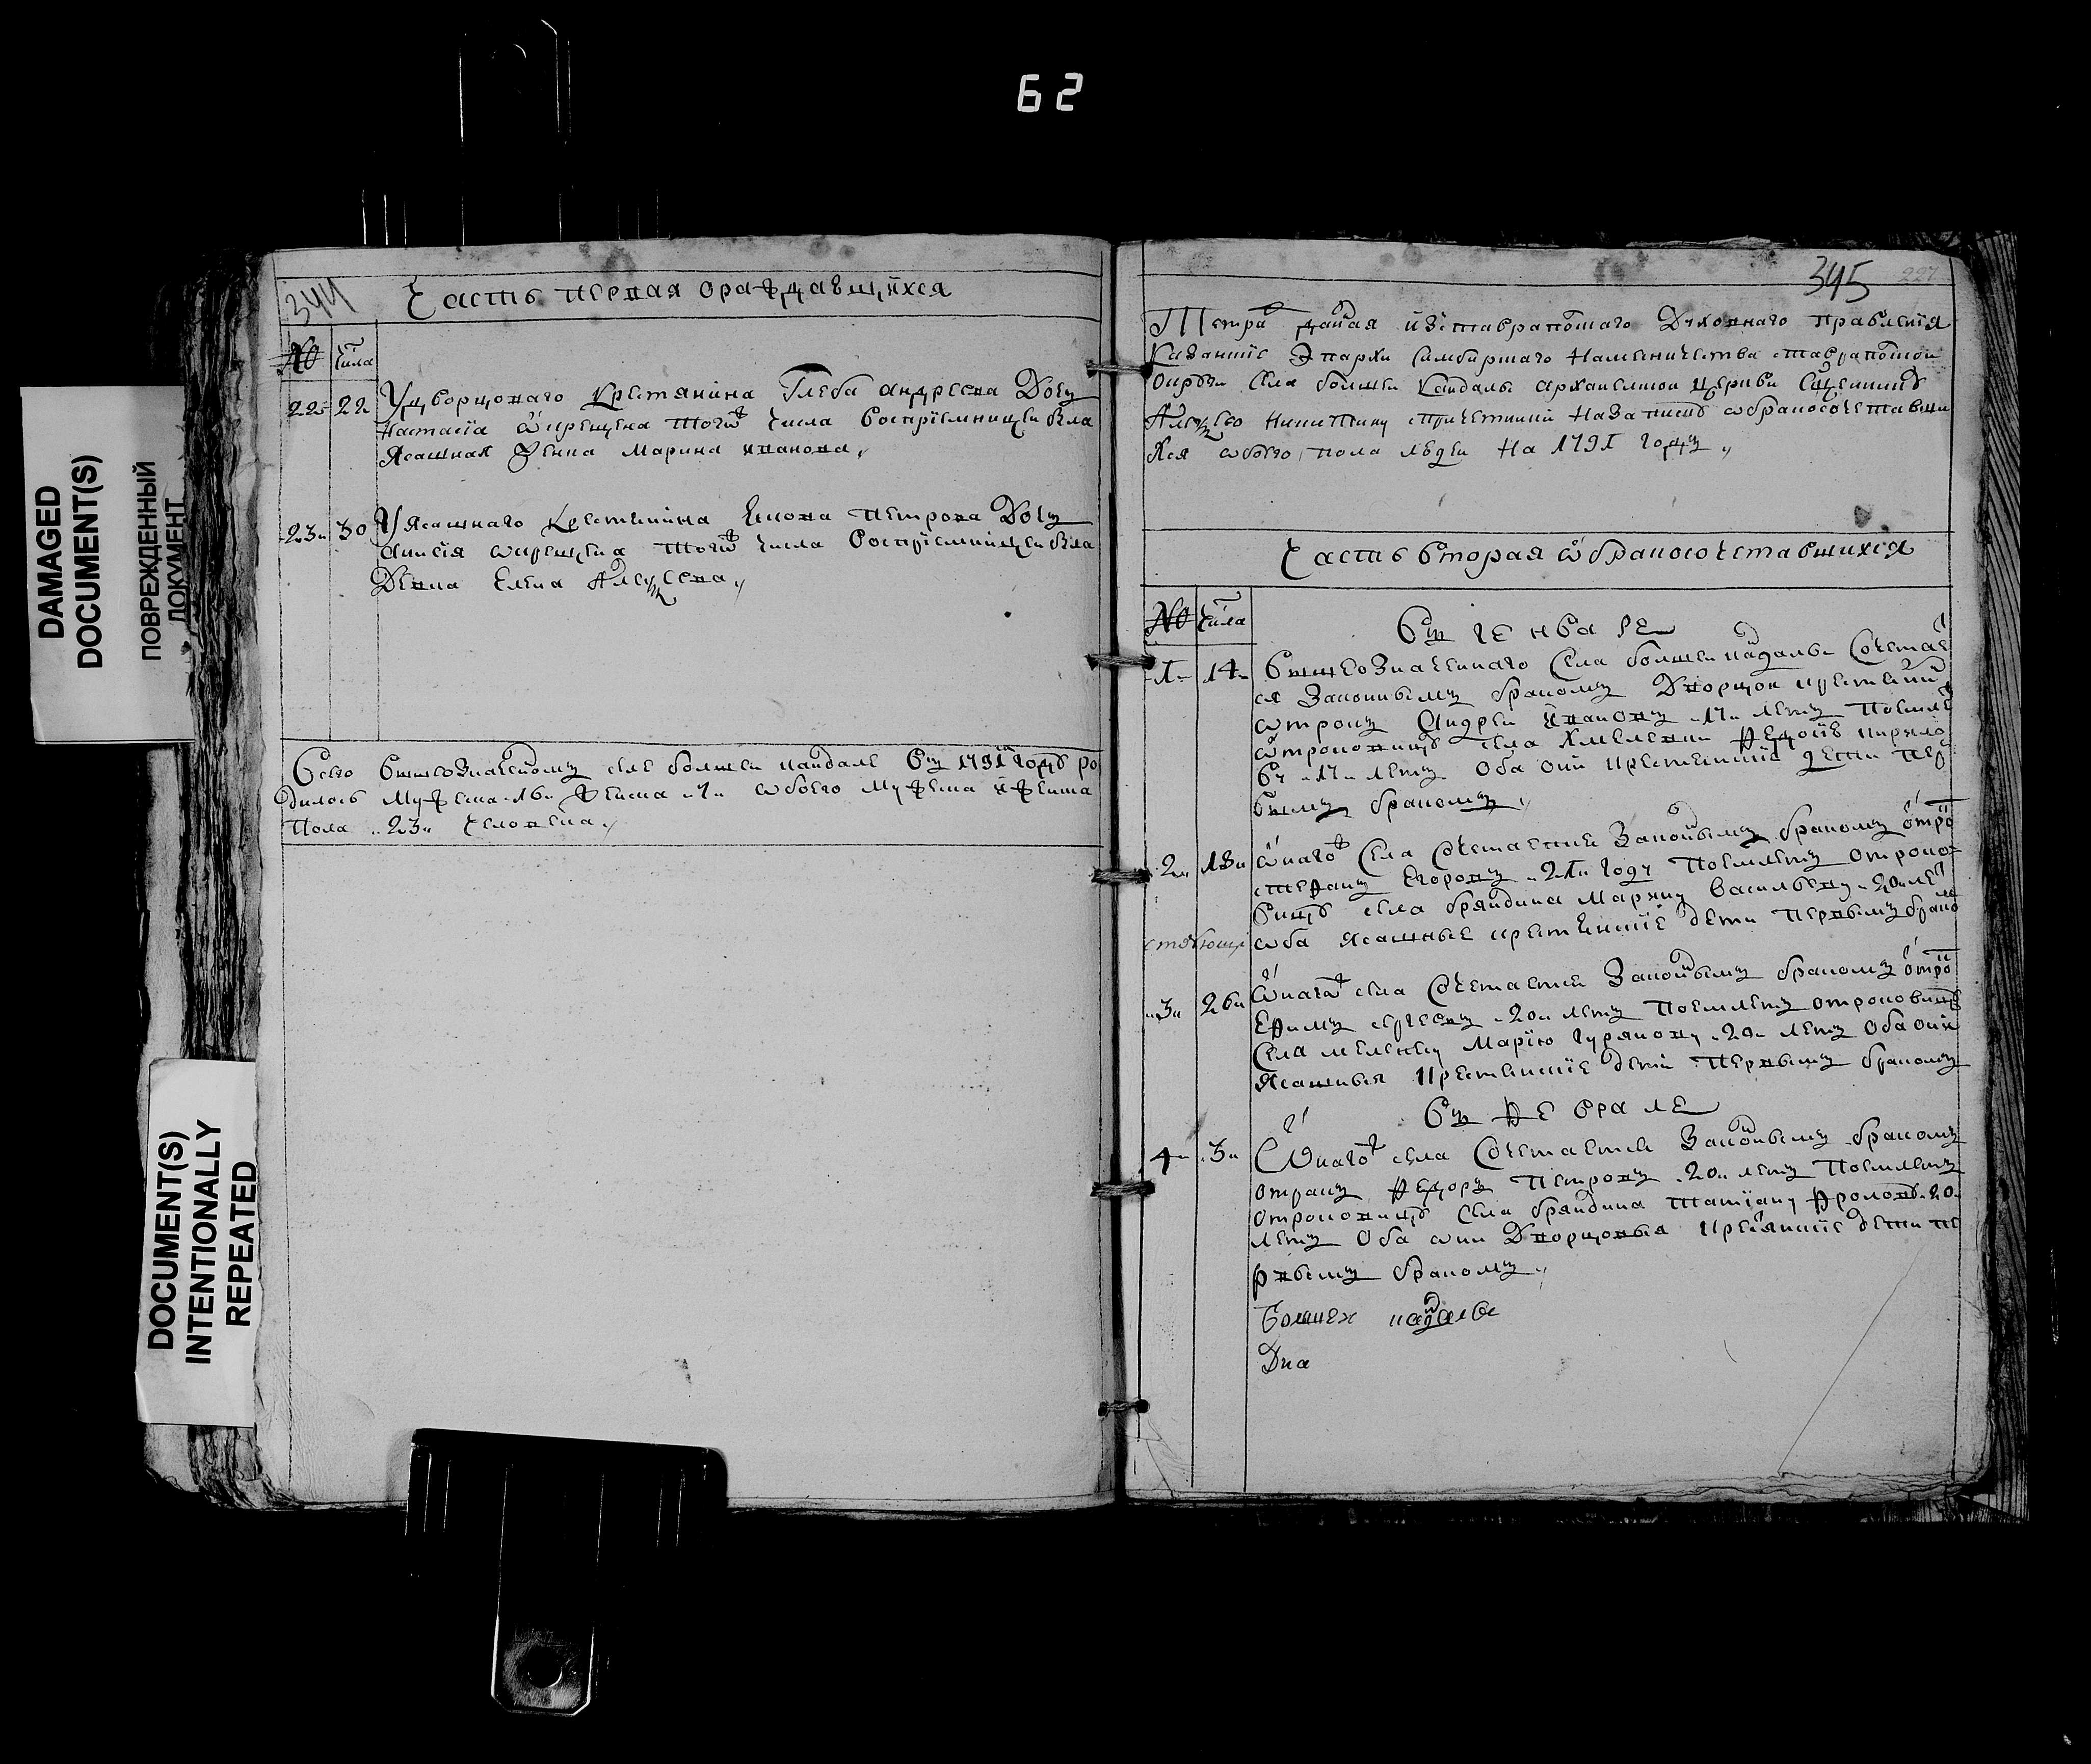 62
DAMAGED
DOCUMENT(S)
ПОВРЕЖДЕННЫЙ
ДОКУМЕНТ
DOCUMENT(S)
INTENTIONALLY
REPEATED
344
Часть первая ораждавшихся
№ числа
22 22 У дворцоваго крестянина Глеба андреева Дочь
настасiа ѡкрещена тогѡж числа воспрiемницеи была
Ясашная женка Марина иванова
23 30 У ясашнаго крестянина петрова Дочь
ѡкрещена тогѡж числа воспрiемницеи была
Девка Елена Алеѯеева
Всего вышеозначеному селе болшеи кандале въ 1791 годѣ ро
дилось мужеска 16 женска 7 ѡбоего мужеска и женска
пола 23 человека
345
227
Тетра даная из ставраполскаго Духовнаго правленiя
Казанские Епархи Симбирскаго Наместничества ставраполскои
округи Села болшеи Кандалы архангелскои церкви Священникѣ
Алеѯѣю никитину спричетники На запискѣ ѡбракосочетавши
хся ѡбоего пола людеи На 1791 годъ
Часть вторая ѡбракосочетавшихся
№ числа
въ генваре
1 14 вышеозначеннаго Села болшеи кадалы Сочетал
ся Законнымъ бракомъ Дворцов крестянин
ѡтрокъ Андреи ивановъ 17 летъ Поемле
ѡтроковицѣ села Хмелевки Федосiѣ кирило
вѹ 17 летъ Оба они крестянскiя дети пер
вымъ бракомъ
2 18 ѡнагож Села Сочетается Законымъ бракомъ отро
стефанъ Егоровъ 21 годѹ Поемлетъ отроко
вицѣ села бряндина Марину васильевѹ 20 ле
ѡба ясашные крестянские дети первымъ брако
3 26 ѡнагож села Сочетается Законымъ бракомъ отро
Ефимъ сергеевъ 20 летъ Поемлетъ отроковицѣ
Села Марiю гуряновѹ 20 летъ Оба они
Ясашныя крестянские детi первымъ бракомъ
въ феврале
4 3 Ѡнагож села Сочетается Законымъ бракомъ
отракъ Федоръ Петровъ 20 летъ Поемлетъ
отроковицѣ Села бряндина татiянѹ фроловѣ 20
летъ Оба ѡни Дворцовыя крестянские дети пе
рвымъ бракомъ
болшеи кадалы
Дка